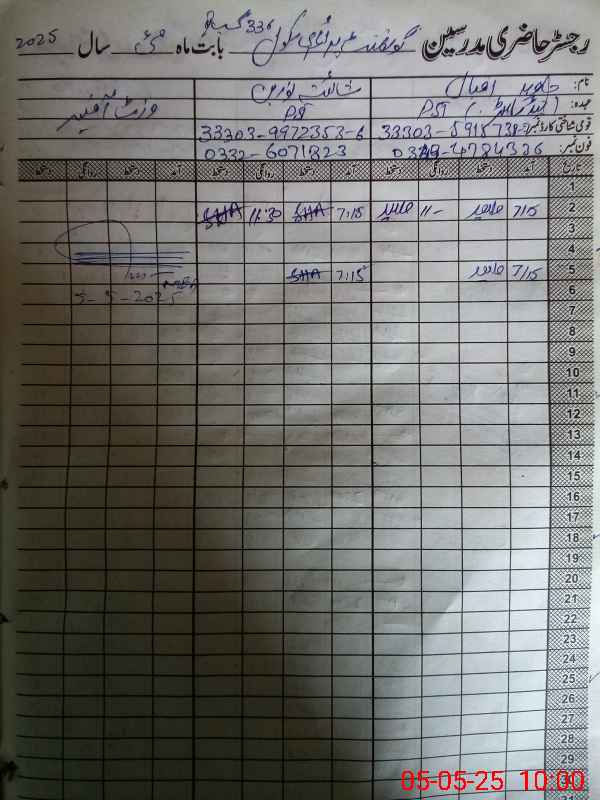 رجسٹر حاضری مدرسین گورنمنٹ پرائمری سکول 336 گ ب بابت ماہ مئی سال 2025
نام: جاوید اقبال شائستہ نورین وزٹ آفیسر
عہدہ: PST PST
قومی شناختی کارڈ نمبر 33303-9972353-6
فون نمبر: 0332-6071823
تاریخ آمد دستخط روانگی دستخط آمد دستخط روانگی دستخط آمد دستخط روانگی دستخط
1
2 7/15 جاوید 11- جاوید 7:15 SHA 11:30 SHA
3
4
5 7/15 جاوید 7:15 SHA
6 5-5-2025
7
8
9
10
11
12
13
14
15
16
17
18
19
20
21
22
23
24
25
26
27
28
29
30
31
05-05-25 10:00